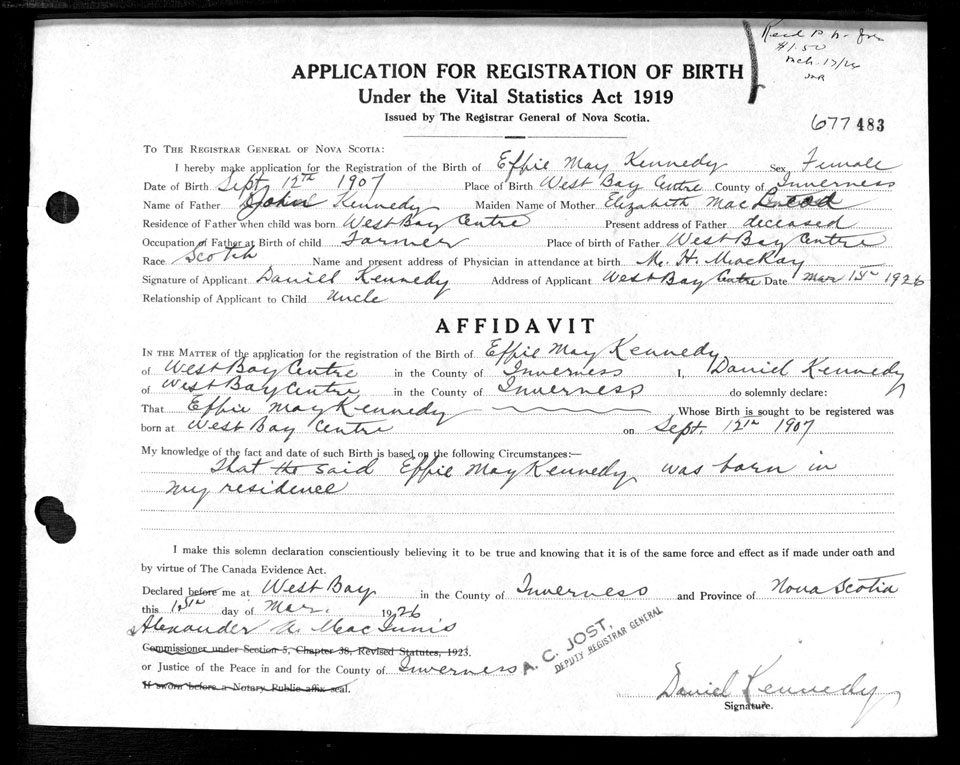 Rec'd P. N.
$1.50
Mch. 17/26
JNR
APPLICATION FOR REGISTRATION OF BIRTH
Under the Vital Statistics Act 1919
Issued by The Registrar General of Nova Scotia.
677483
To The Registrar General of Nova Scotia:
I hereby make application for the Registration of the Birth of Effie May Kennedy Sex Female
Date of Birth Sept, 12th 1907 Place of Birth West Bay Centre County of Inverness
Name of Father John Kennedy Maiden Name of Mother Elizabeth Mac
Residence of Father when child was born West Bay Centre Present address of Father deceased
Occupation of Father at Birth of child Farmer Place of birth of Father West Bay Centre
Race Scotch Name and present address of Physician in attendance at birth M. H. MacKay
Signature of Applicant Daniel Kennedy Address of Applicant West Bay Centre Date Mar 15th 1926
Relationship of Applicant to Child Uncle
AFFIDAVIT
In the Matter of the application for the registration of the Birth of Effie May Kennedy
of West Bay Centre in the County of Inverness I, Daniel Kennedy
of West Bay Centre in the County of Inverness do solemnly declare:
That Effie May Kennedy Whose Birth is sought to be registered was
born at West Bay Centre on Sept. 12th 1907
My knowledge of the fact and date of such Birth is based on the following Circumstances:—
That the said Effie May Kennedy was born in
my residence
I make this solemn declaration conscientiously believing it to be true and knowing that it is of the same force and effect as if made under oath and
by virtue of The Canada Evidence Act.
Declared before me at West Bay in the County of Inverness and Province of Nova Scotia
this 15th day of Mar. 1926
Alexander A. MacInnis
Commissioner under Section 5, Chapter 38, Revised Statutes, 1923.
or Justice of the Peace in and for the County of Inverness
A. C. JOST,
DEPUTY REGISTRAR GENERAL
If sworn before a Notary Public affix seal.
Daniel Kennedy
Signature.